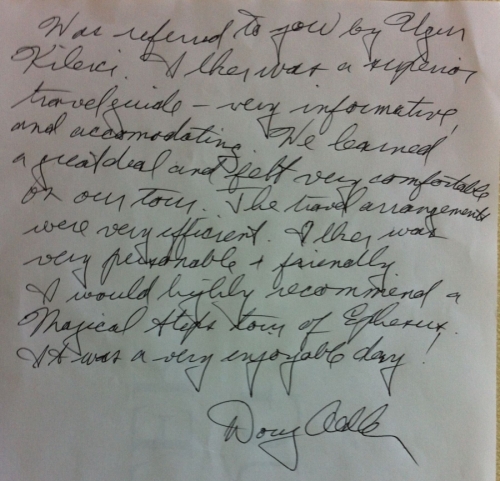 Was referred to you by Ugur
Kilerci. Ilker was a superior
travel guide - very informative,
and accomodating. We learned
a great deal and felt very comfortable
on our tour. The travel arrangements
were very efficient. Ilker was
very personable + friendly
I would highly recommend a
Magical Steps tour of Ephesus.
It was a very enjoyable day!
Doug